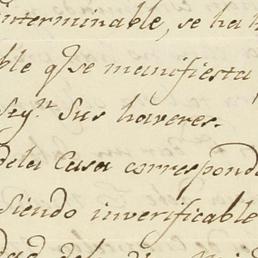 interminable, se ha
ble q.e se manifiesta
Seg.n Sus haveres.
dela Casa correspond
Siendo inverificable
dad del